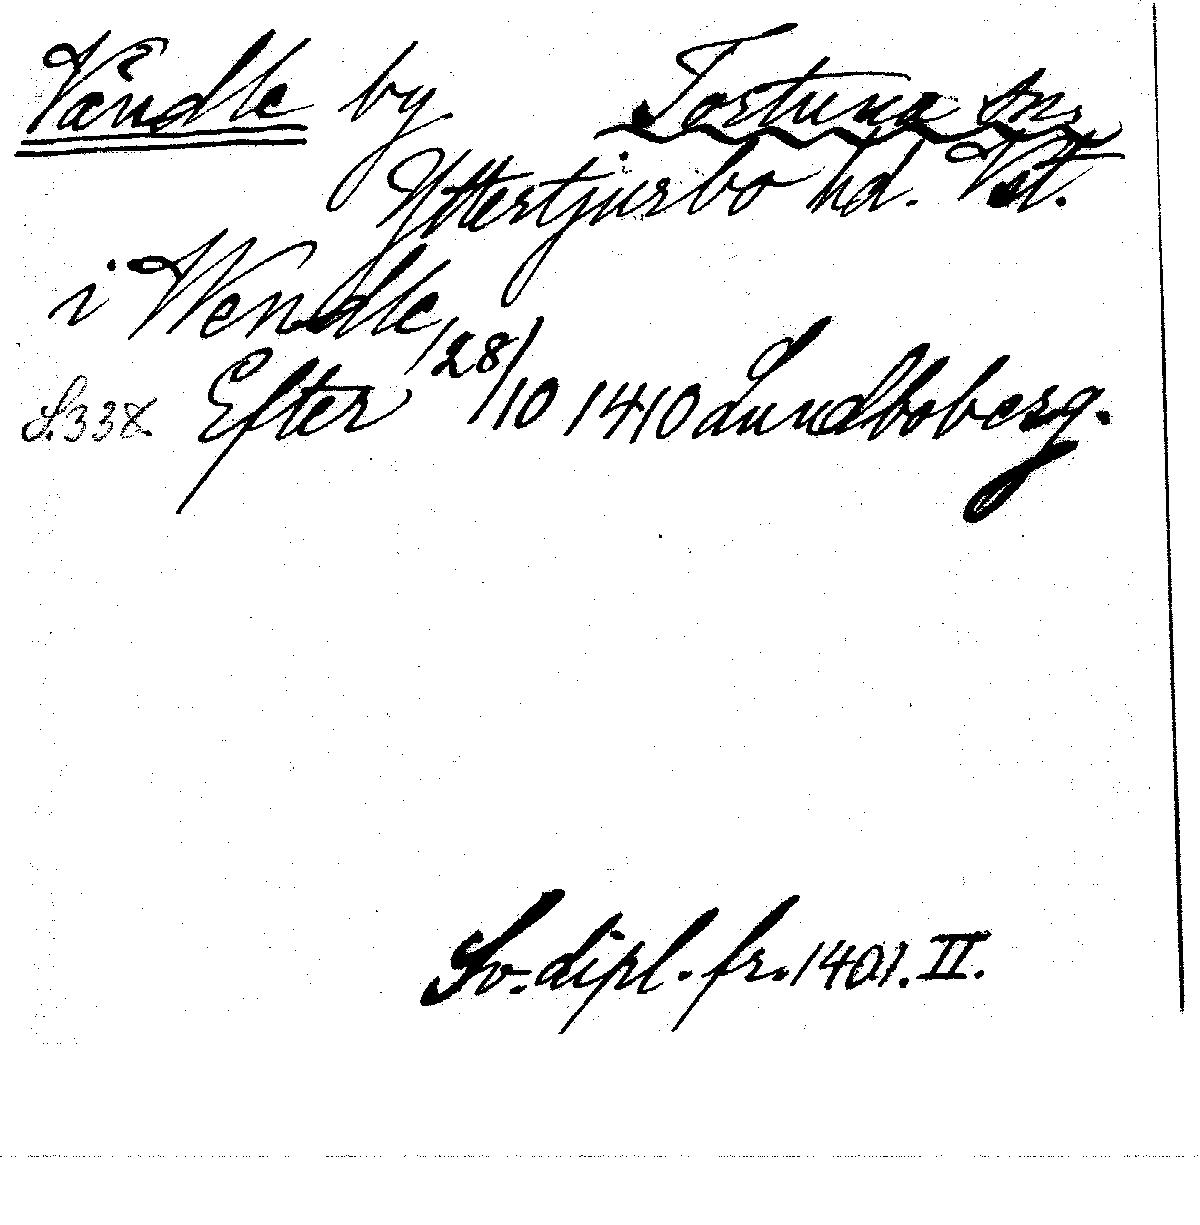 Vändle by Tortuna sn,
Yttertjurbo hd. Vst.
i Wendle
S. 338 Efter 28/10 1410 Lundboberg.
Sv. dipl. fr. 1401. II.